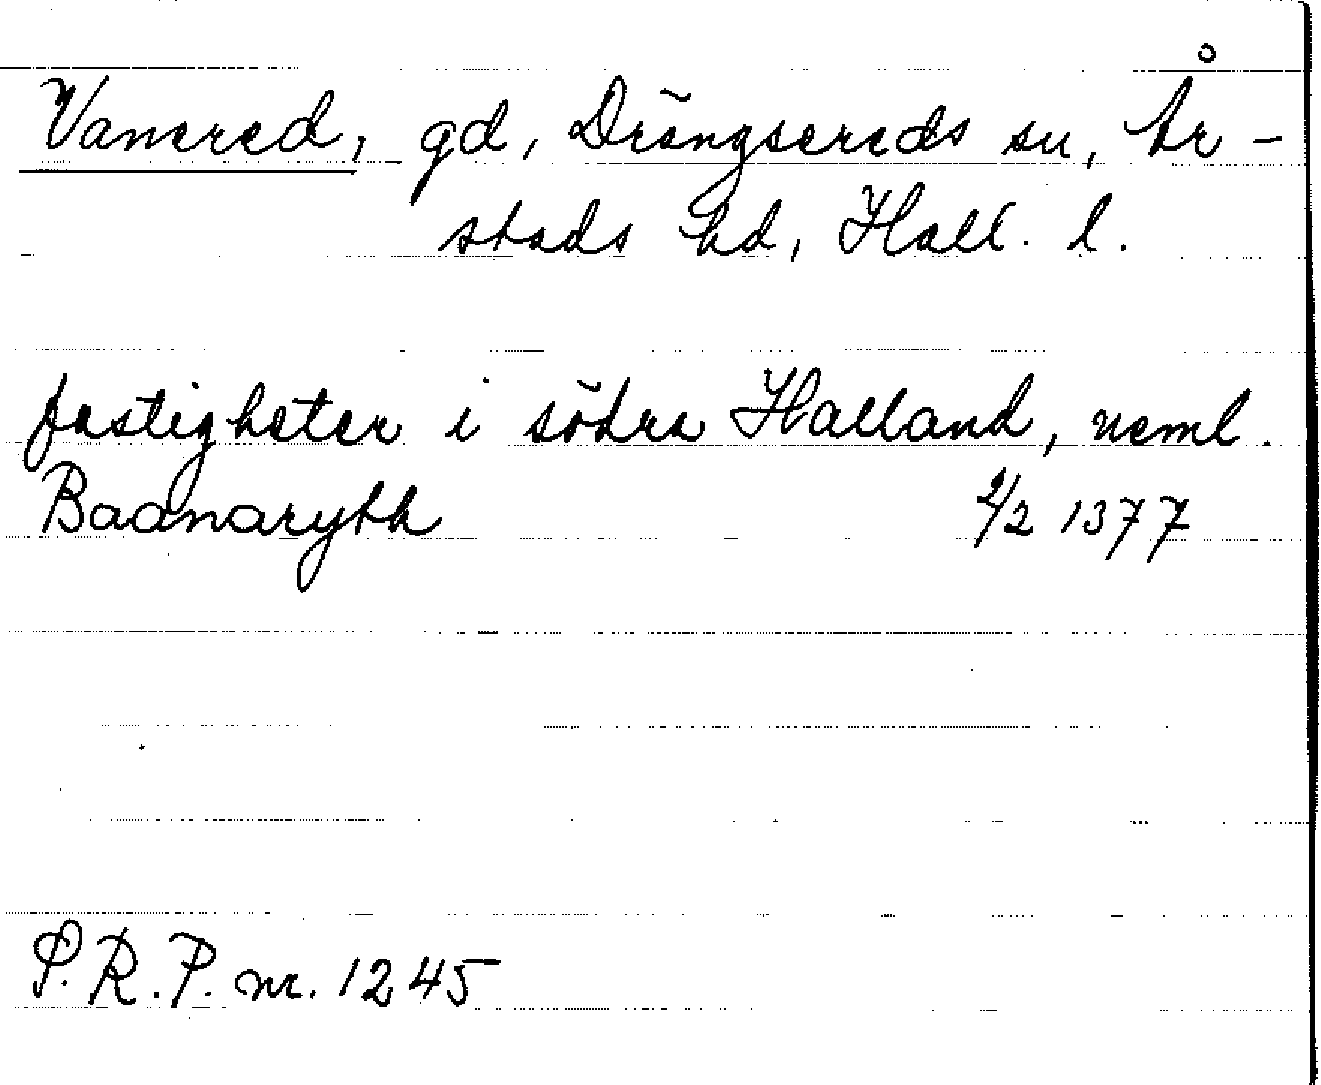 Vanered, gd, Drängsereds sn, År-
stads hd, Hall. l.
fastigheter i södra Halland, neml.
Baanaryth 2/2 1377
S.R.P. nr. 1245